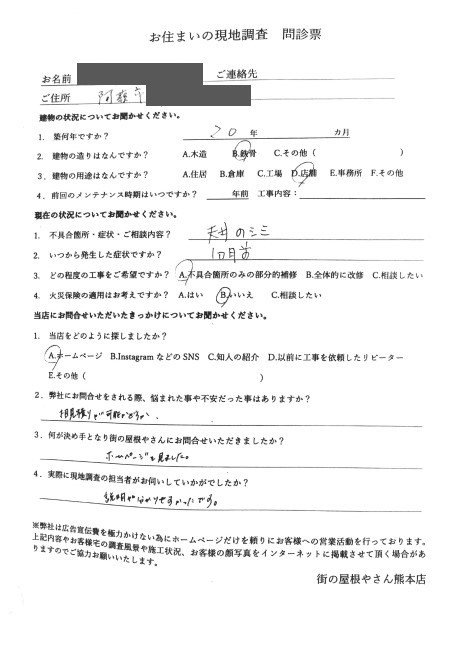 お住まいの現地調査 問診票
お名前 ご連絡先
ご住所 阿蘇市
建物の状況についてお聞かせください。
1. 築何年ですか? 20 年 カ月
2. 建物の造りはなんですか? A.木造 B.鉄骨 C.その他( )
3. 建物の用途はなんですか? A.住居 B.倉庫 C.工場 D.店舗 E.事務所 F.その他
4. 前回のメンテナンス時期はいつですか? 年前 工事内容:
現在の状況についてお聞かせください。
1. 不具合箇所・症状・ご相談内容? 天井のシミ
2. いつから発生した症状ですか? 1ヶ月前
3. どの程度の工事をご希望ですか? A.不具合箇所のみの部分的補修 B.全体的に改修 C.相談したい
4. 火災保険の適用はお考えですか? A.はい B.いいえ C.相談したい
当店にお問合せいただいたきっかけについてお聞かせください。
1. 当店をどのように探しましたか?
A.ホームページ B.InstagramなどのSNS C.知人の紹介 D.以前に工事を依頼したリピーター
E.その他( )
2. 弊社にお問合せをされる際、悩まれた事や不安だった事はありますか?
相見積りが可能かどうか、
3. 何が決め手となり街の屋根やさんにお問合せいただきましたか?
ホームページを見ました。
4. 実際に現地調査の担当者がお伺いしていかがでしたか?
説明が分かりやすかったです。
※弊社は広告宣伝費を極力かけない為にホームページだけを頼りにお客様への営業活動を行っております。
上記内容やお客様宅の調査風景や施工状況、お客様の顔写真をインターネットに掲載させて頂く場合があ
りますのでご協力お願いいたします。
街の屋根やさん熊本店